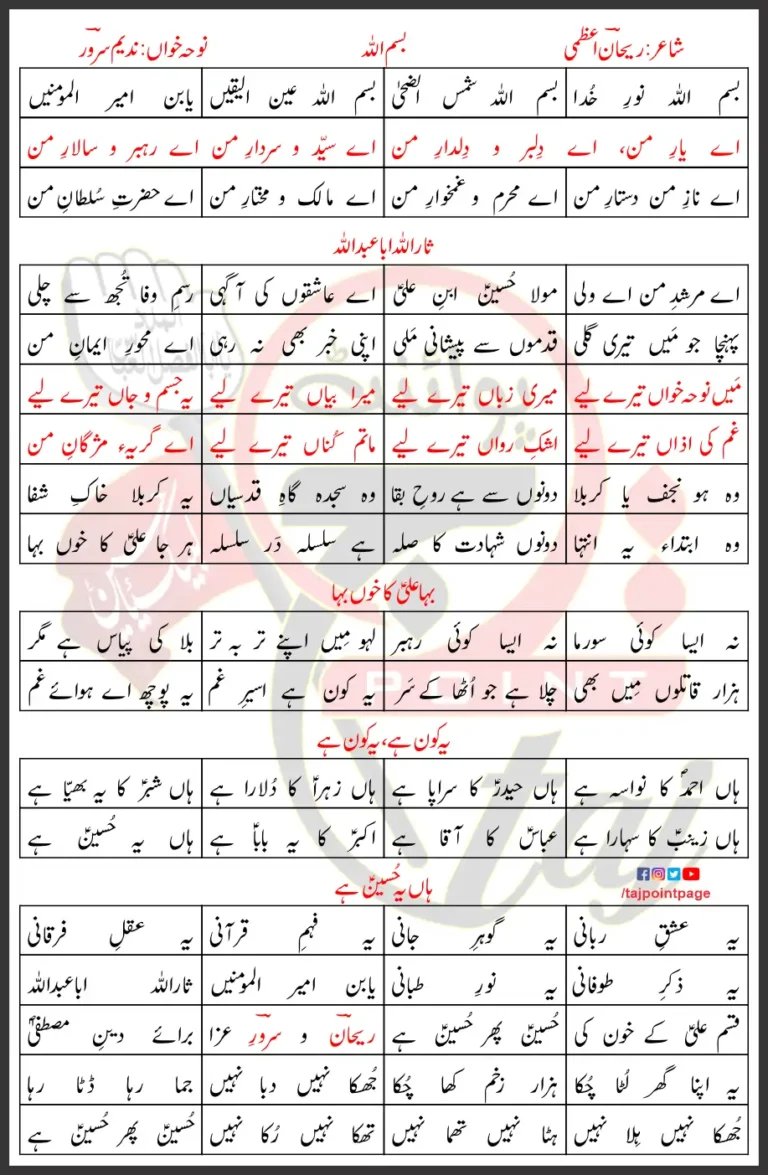 شاعر: ریحان اعظمی بسم اللہ نوحہ خواں: ندیم سرور
بسم اللہ نورِ خُدا بسم اللہ شمس الضحیٰ بسم اللہ عین الیقیں یابن امیر المومنیں
اے یارِ من، اے دِلبر و دِلدارِ من اے سیّد و سردارِ من اے رہبر و سالارِ من
اے نازِ من دستارِ من اے محرم و غمخوارِ من اے مالک و مختارِ من اے حضرتِ سُلطانِ من
ثاراللہ اباعبداللہ
اے مرشدِ من اے ولی مولا حُسینؑ ابنِ علیؑ اے عاشقوں کی آگہی رسمِ وفا تُجھ سے چلی
پہنچا جو مَیں تیری گلی قدموں سے پیشانی مَلی اپنی خبر بھی نہ رہی اے محورِ ایمانِ من
مَیں نوحہ خواں تیرے لیے میری زباں تیرے لیے میرا بیاں تیرے لیے یہ جسم و جاں تیرے لیے
غم کی اذاں تیرے لیے اشکِ رواں تیرے لیے ماتم کُناں تیرے لیے اے گریہء مژگانِ من
وہ ہو نجف یا کربلا دونوں سے ہے روحِ بقا وہ سجدہ گاہِ قدسیاں یہ کربلا خاکِ شفا
وہ ابتداء یہ انتہا دونوں شہادت کا صلہ ہے سلسلہ دَر سلسلہ ہر جا علیؑ کا خوں بہا
بہا علیؑ کا خوں بہا
نہ ایسا کوئی سورما نہ ایسا کوئی رہبر لہو مِیں اپنے تر بہ تر بلا کی پیاس ہے مگر
ہزار قاتلوں مِیں بھی چلا ہے جو اُٹھا کے سَر یہ کون ہے اسیرِ غم یہ پوچھ اے ہوائے غم
یہ کون ہے، یہ کون ہے
ہاں احمدؐ کا نواسہ ہے ہاں حیدرؑ کا سراپا ہے ہاں زہراؑ کا دُلارا ہے ہاں شبرؑ کا یہ بھیّا ہے
ہاں زینبؑ کا سہارا ہے عباسؑ کا آقا ہے اکبرؑ کا یہ باباؑ ہے ہاں یہ حُسینؑ ہے
ہاں یہ حُسینؑ ہے
/tajpointpage
یہ عشقِ ربانی یہ گوہرِ جانی یہ فہمِ قرآنی یہ عقلِ فرقانی
یہ ذکرِ طوفانی یہ نورِ طبانی یابن امیر المومنیں ثاراللہ اباعبداللہ
قسم علیؑ کے خون کی حُسینؑ پھر حُسینؑ ہے ریحان و سرورِ عزا برائے دینِ مصطفیؐ
یہ اپنا گھر لُٹا چُکا ہزار زخم کھا چُکا جُھکا نہیں دبا نہیں جما رہا ڈٹا رہا
جُھکا نہیں ہِلا نہیں ہٹا نہیں تھما نہیں تھکا نہیں رُکا نہیں حُسینؑ پھر حُسینؑ ہے
POINT
taj